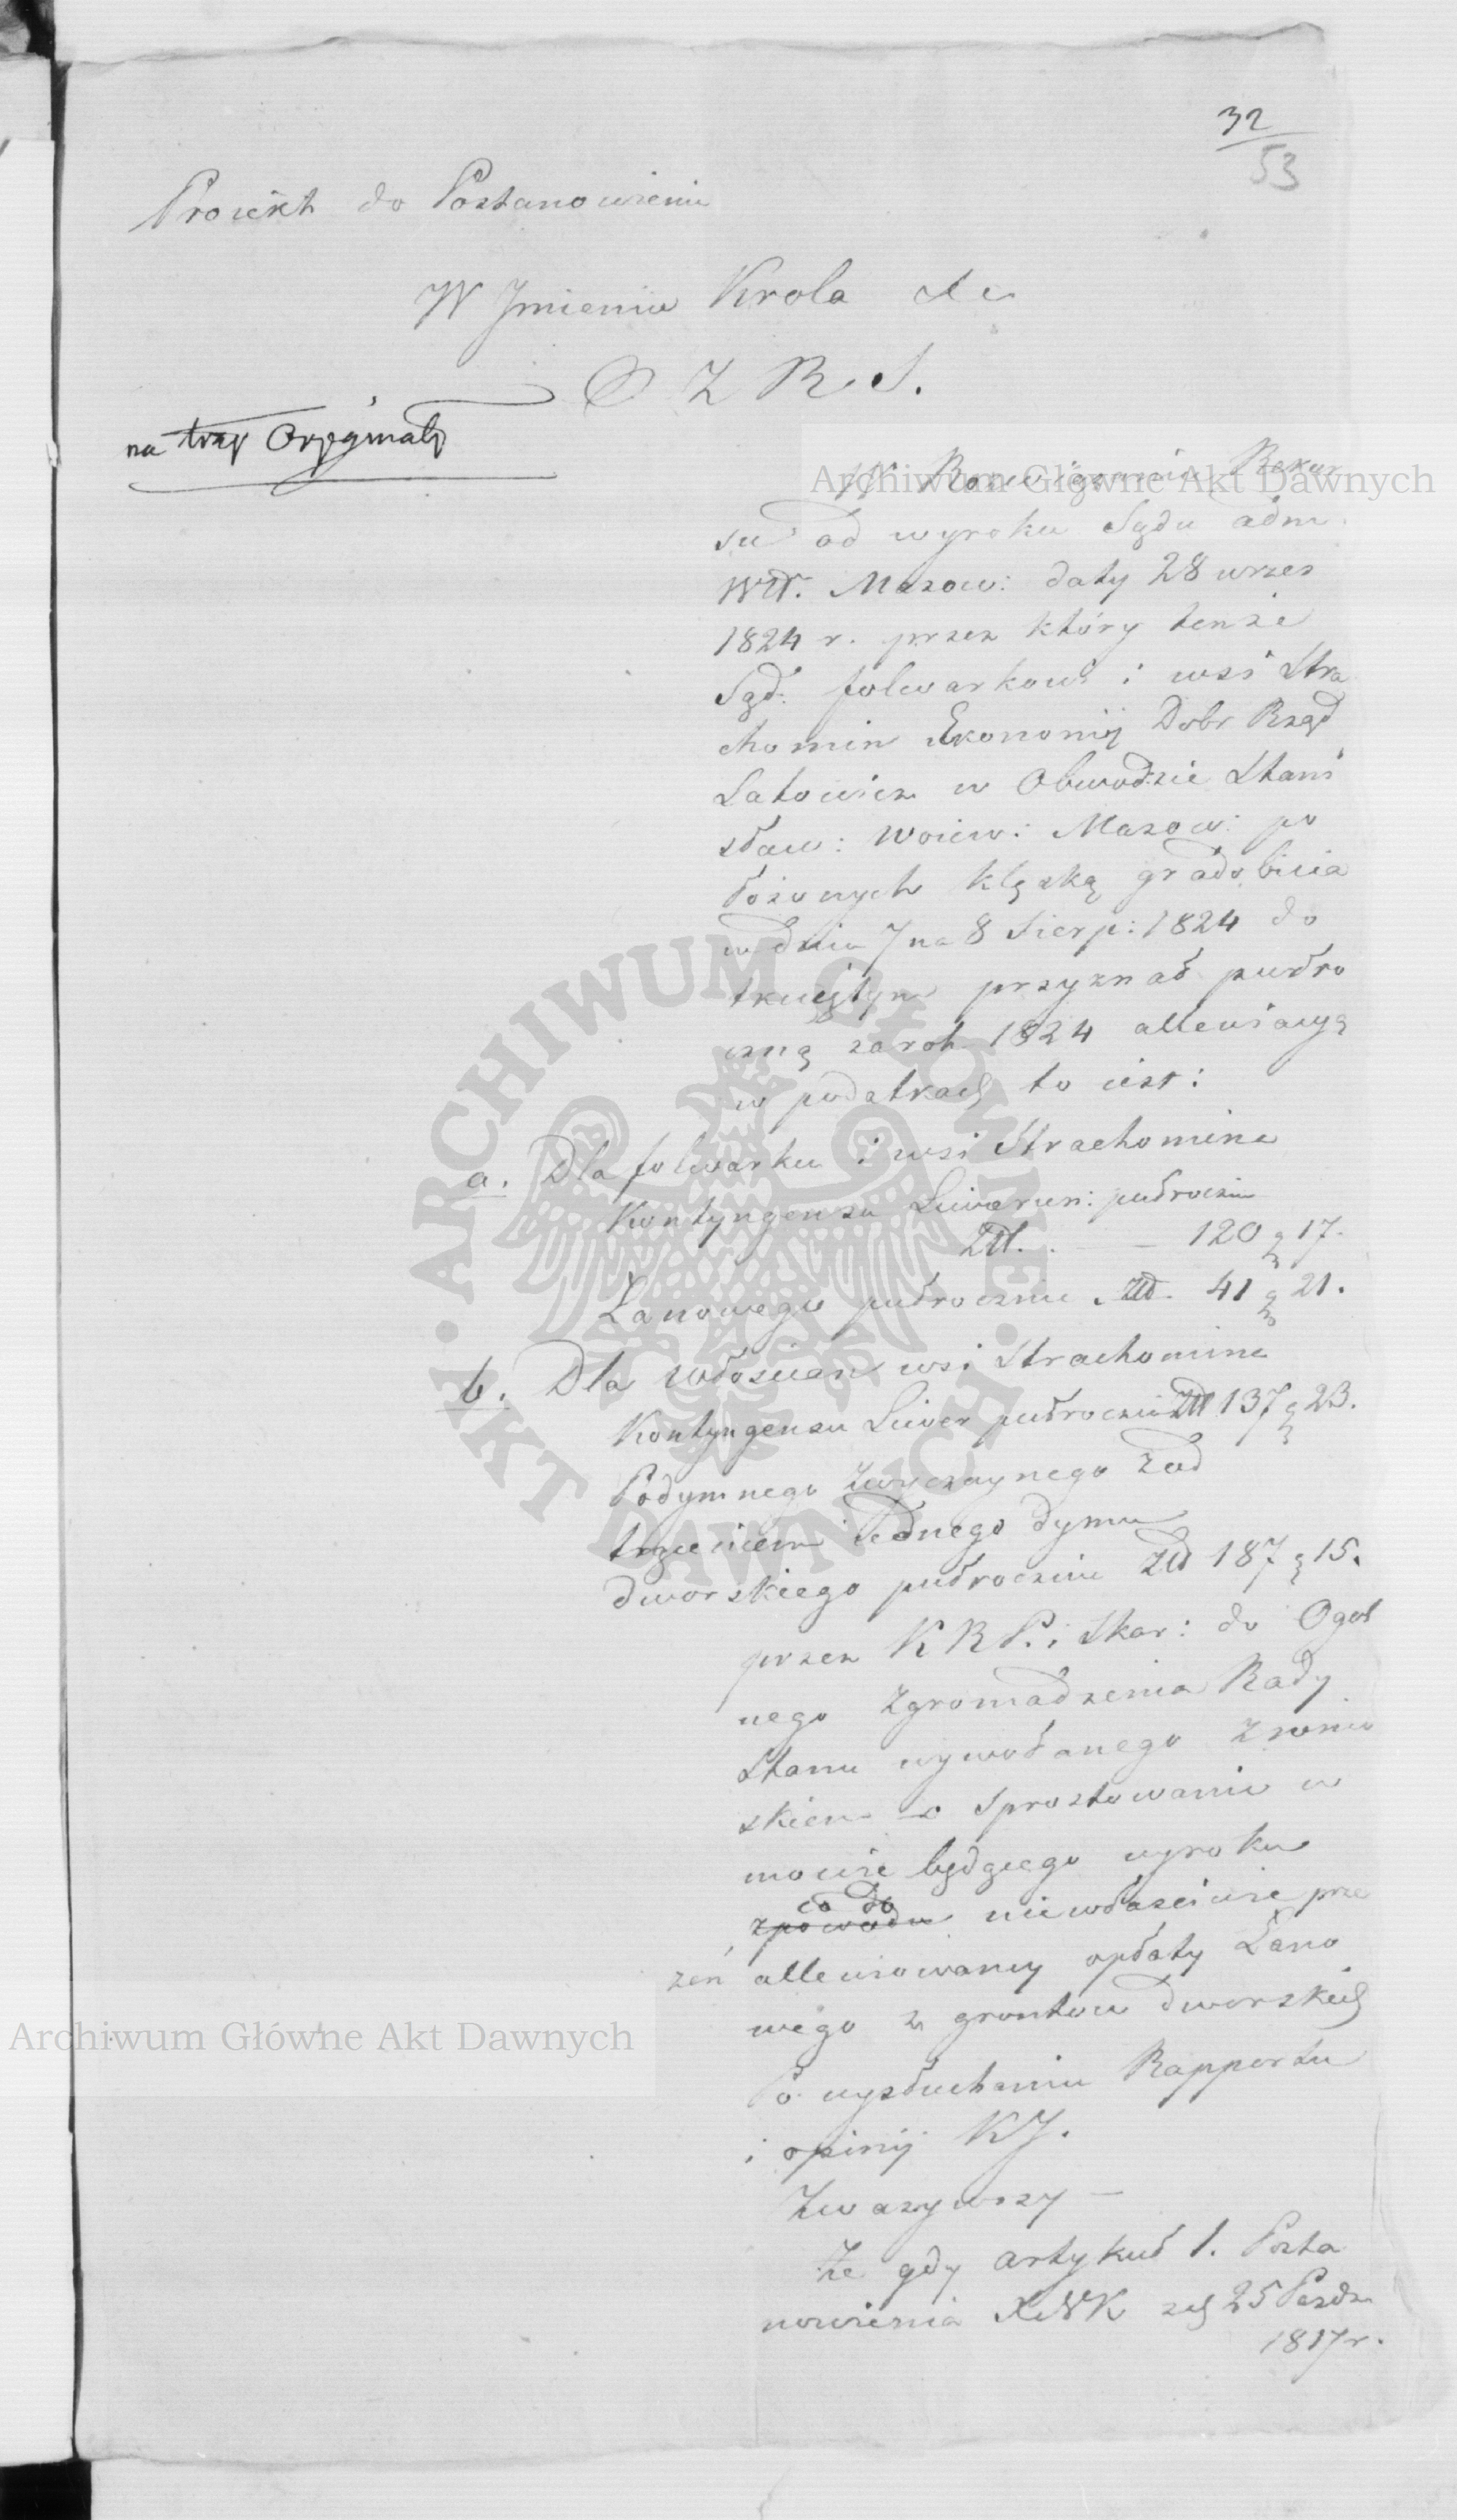 32
53
Proiekt do Postanowienia
W Jmieniu Krola etc
O Z R S.
na trzy Oryginały
W Rozwiązaniu Rekur
su od wyroku Sądu adm.
Wdt. Mazow: daty 28 wrzes
1824 r. przez który tenże
Sąd: folwarkowi i wsi Stra
chomin Ekonomij Dobr Rząd
Latowicz w Obwodzie Stani
sław: Woiew: Mazow: po
łożonych klęską gradobicia
w dniu 7 na 8 Sierp: 1824 do
tkniętym przyznał pułro
czną za rok 1824 allewiacyą
w podatkach to iest:
a. Dla folwarku i wsi Strachomina
Kontyngensu Liweruн: pułrocznie
Złł. . — 120 g 17.
Łanowego pułrocznie Złł 41 g 21.
b. Dla włoscian wsi Strachomina
Kontyngensu Liwer pułrocznie Złł 137 g 23.
Podymnego zwyczaynego z od
trąceniem iednego dymu
dworskiego pułrocznie Złł 187 g 15.
przez K R P. i Skar: do Ogol
nego Zgromadzenia Rady
Stanu wywołanego z wnio
skiem o sprostowanie w
mowie będącego wyroku
co do
z powodu niewłaściwie prze
zeń allewiowaney opłaty Łano
wego z grontow dworskich
Po wysłuchaniu Rapportu
i opinij KJ.
Zwazywszy —
Ze gdy artykuł 1. Posta
nowienia XNK z d 25 Pazdz
1817 r.
Archiwum Główne Akt Dawnych
Archiwum Główne Akt Dawnych
ARCHIWUM GŁÓWNE • AKT DAWNYCH •